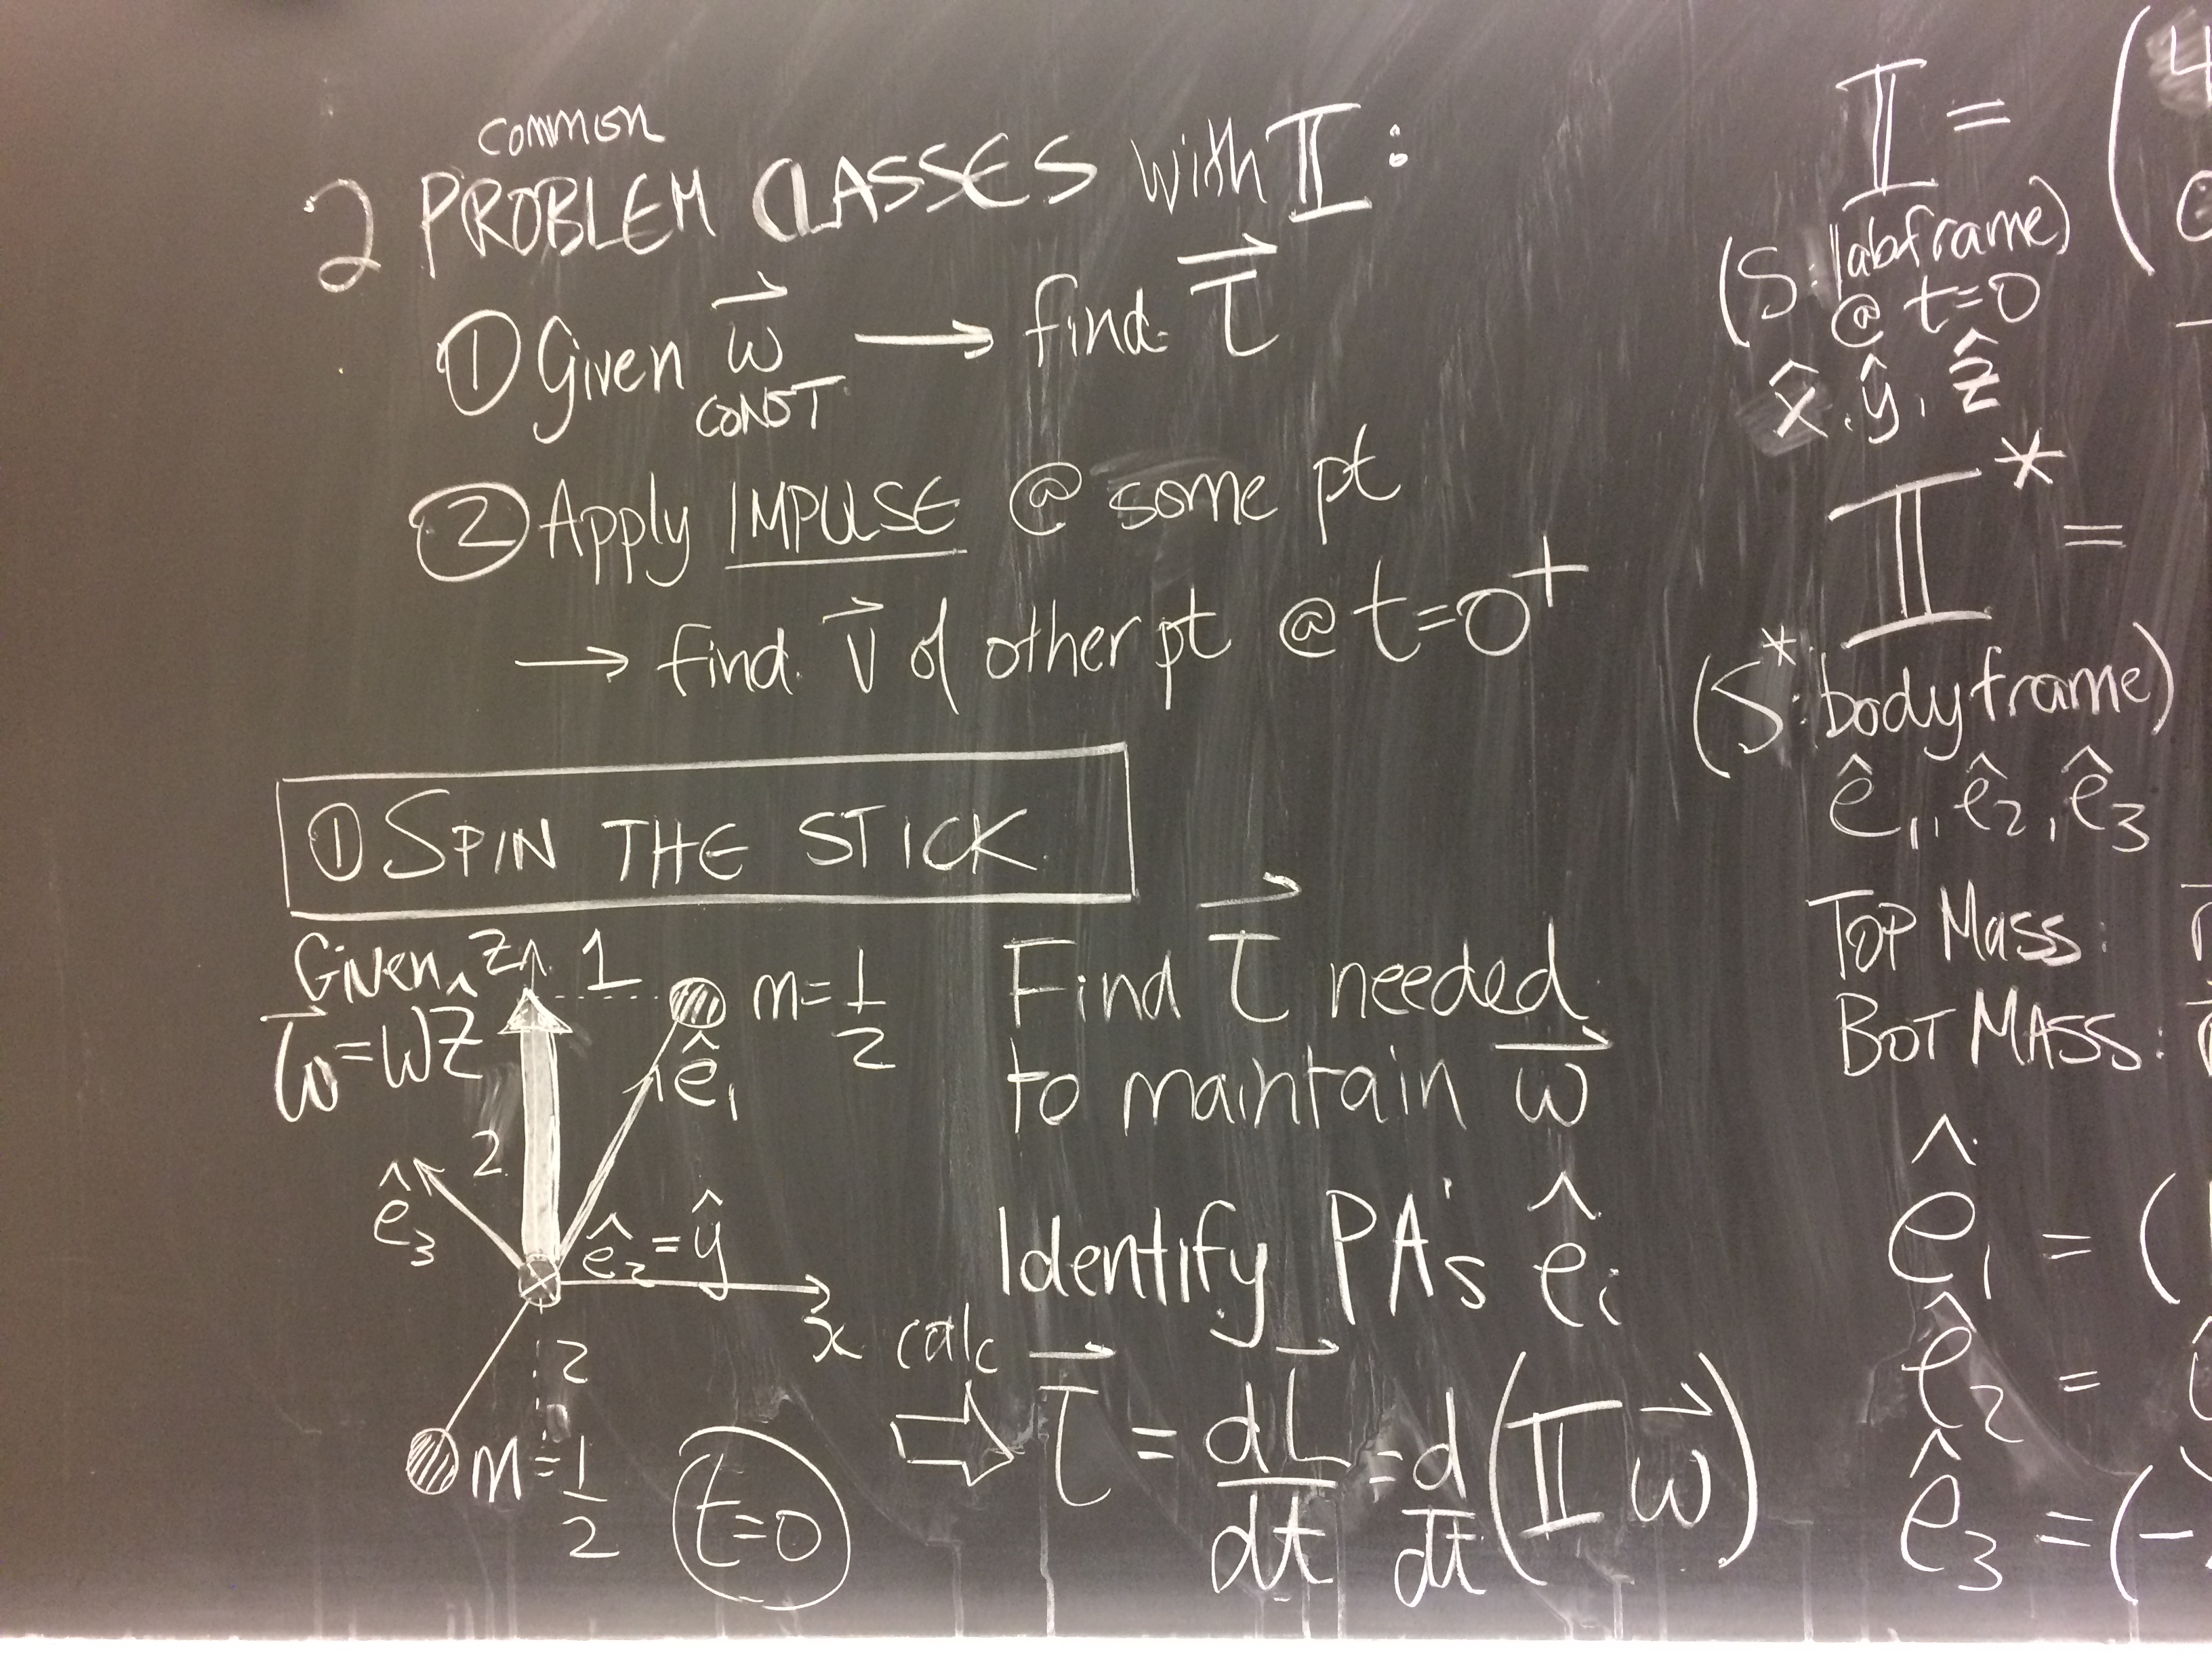 common
2 PROBLEM CLASSES with 𝕀:
① Given ω⃗ → find τ⃗
CONST
② Apply IMPULSE @ some pt
→ find v⃗ of other pt @ t=0⁺
① SPIN THE STICK
Given
ω⃗=ωẑ
z 1
m=1/2
ê₁
2
ê₃
ê₂=ŷ
x
2
m=1/2
t=0
Find τ⃗ needed
to maintain ω⃗
Identify PA's êᵢ
calc
⇒ τ⃗ = dL⃗/dt = d/dt (𝕀 ω⃗)
𝕀 = ( 4
(S: labframe)
@ t=0
x̂, ŷ, ẑ
𝕀* =
(S*: bodyframe)
ê₁, ê₂, ê₃
TOP MASS:
BOT MASS:
ê₁ = (
ê₂ =
ê₃ = (-